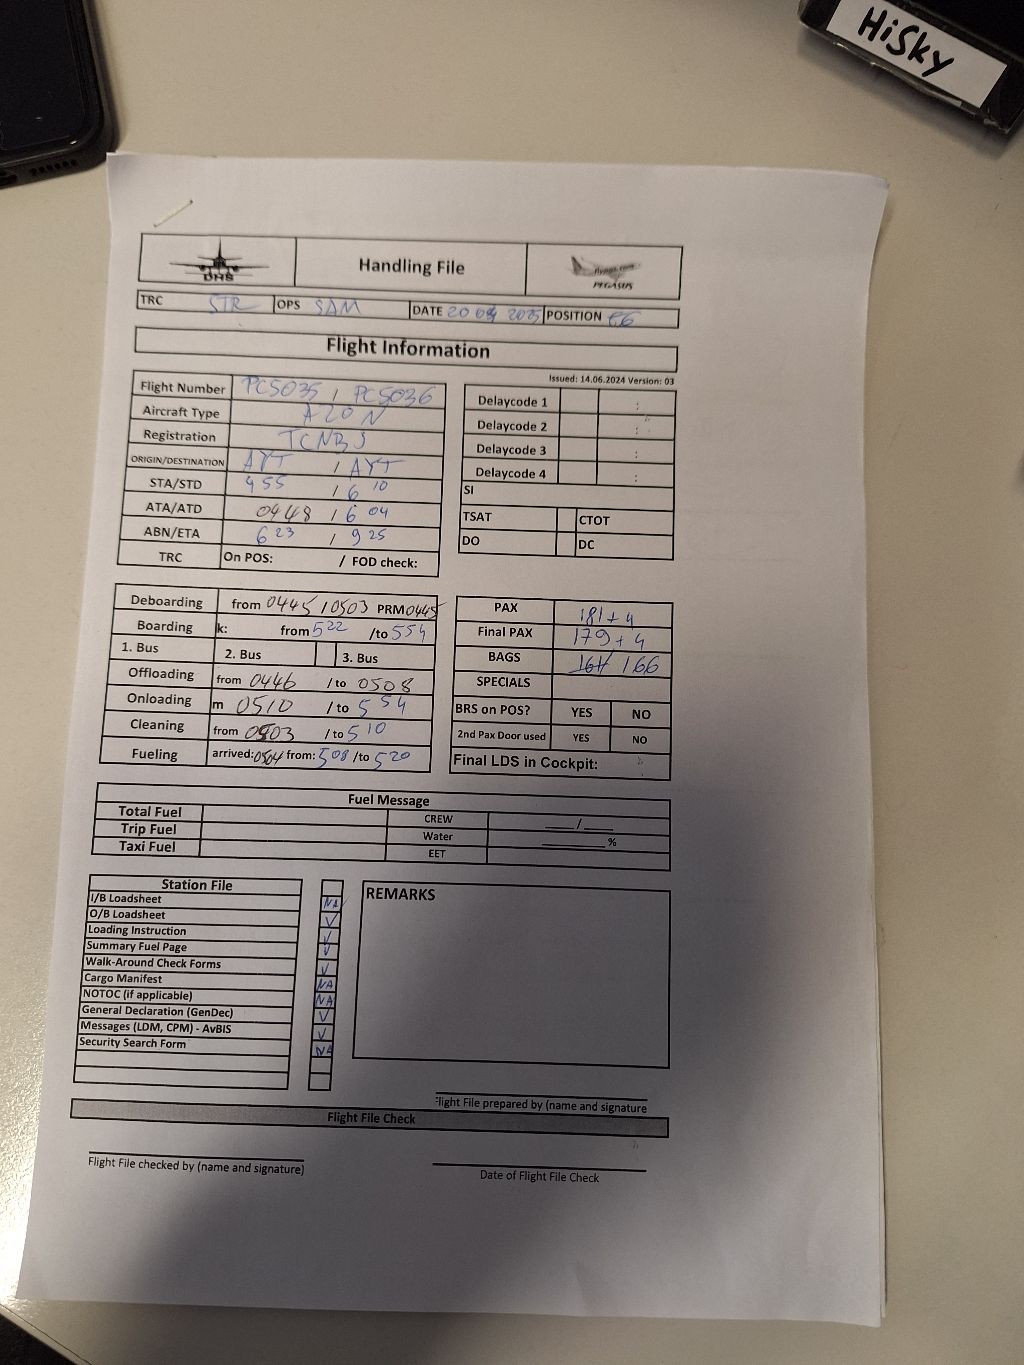 HiSky
DHS
Handling File
flypgs.com
PEGASUS
TRC STR OPS SAM DATE 20 09 2025 POSITION
Flight Information
Issued: 14.06.2024 Version: 03
Flight Number PC5035 / PC5036
Aircraft Type A20N
Registration TCNBJ
ORIGIN/DESTINATION AYT / AYT
STA/STD 455 / 6 10
ATA/ATD 0448 / 6 04
ABN/ETA 6 23 / 9 25
TRC On POS: / FOD check:
Delaycode 1 :
Delaycode 2 :
Delaycode 3 :
Delaycode 4 :
SI
TSAT CTOT
DO DC
Deboarding from 0445 / 0503 PRM 0445
Boarding k: from 5 22 /to 5 54
1. Bus 2. Bus 3. Bus
Offloading from 0446 /to 0508
Onloading m 0510 /to 5 54
Cleaning from 0503 /to 5 10
Fueling arrived: 0504 from: 508 /to 5 20
PAX 181 + 4
Final PAX 179 + 4
BAGS 166
SPECIALS
BRS on POS? YES NO
2nd Pax Door used YES NO
Final LDS in Cockpit: :
Fuel Message
Total Fuel CREW ___/___
Trip Fuel Water ______%
Taxi Fuel EET
Station File
I/B Loadsheet NA
O/B Loadsheet
Loading Instruction
Summary Fuel Page
Walk-Around Check Forms
Cargo Manifest NA
NOTOC (if applicable) NA
General Declaration (GenDec)
Messages (LDM, CPM) - AvBIS
Security Search Form NA
REMARKS
Flight File prepared by (name and signature
Flight File Check
Flight File checked by (name and signature)
Date of Flight File Check